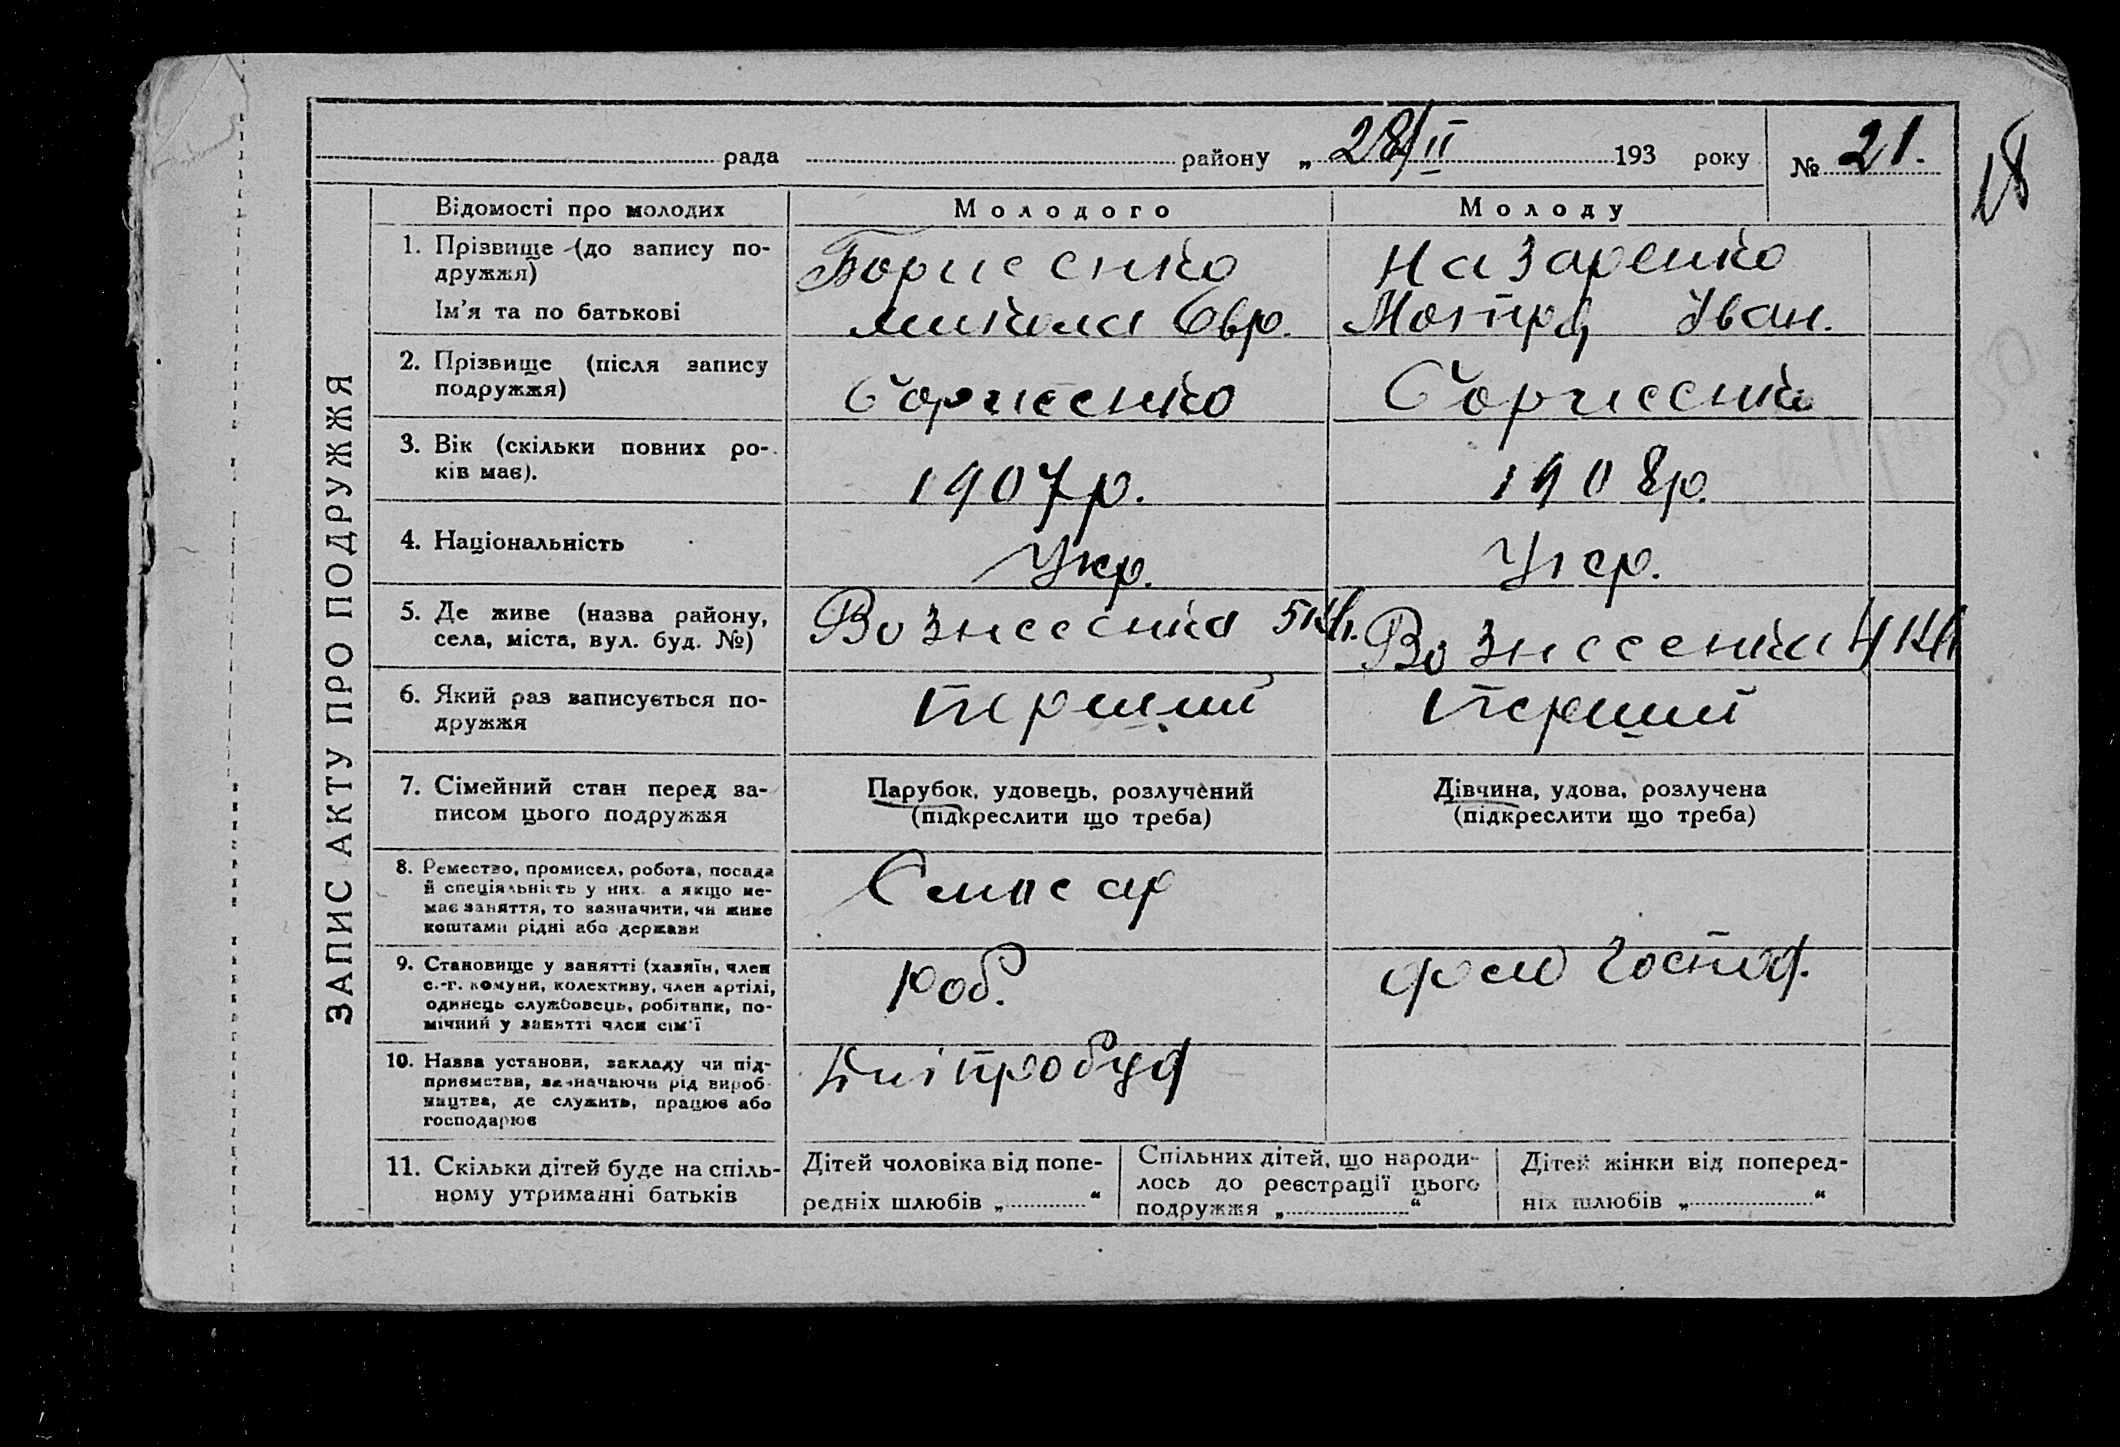 рада района „ 28/II 193 року № 21.
18
ЗАПИС АКТУ ПРО ПОДРУЖЖЯ
Відомості про молодих Молодого Молоду
1. Прізвище (до запису по-
дружжя)
Борисенко Назаренко
Ім'я та по батькові
Микола Євр. Мотря Іван.
2. Прізвище (після запису
подружжя)
Борисенко Борисенко
3. Вік (скільки повних ро-
ків має).
1907 р. 1908 р.
4. Національність
Укр. Укр.
5. Де живе (назва району,
села, міста, вул. буд. №)
Вознесенка 5 кв. Вознесенка 4 кв
6. Який раз записується по-
дружжя
Перший Перший
7. Сімейний стан перед за-
писом цього подружжя
Парубок, удовець, розлучений
(підкреслити що треба)
Дівчина, удова, розлучена
(підкреслити що треба)
8. Ремество, промисел, робота, посада
й спеціяльність у них а якщо не-
має заняття, то зазначити, чи живе
коштами рідні або держави
Слюсар
9. Становище у занятті (хазяїн, член
с.-г. комуни, колективу, член артілі,
одинець службовець, робітник, по-
мічний у занятті член сім'ї
Роб.
дом господ.
10. Назва установи, закладу чи під-
приємства, зазначаючи рід вироб-
ництва, де служить, працює або
господарює
Дніпробуд
11. Скільки дітей буде на спіль-
ному утриманні батьків
Дітей чоловіка від попе-
редніх шлюбів „ “
Спільних дітей, що народи-
лось до реєстрації цього
подружжя „ “
Дітей жінки від поперед-
ніх шлюбів „ “